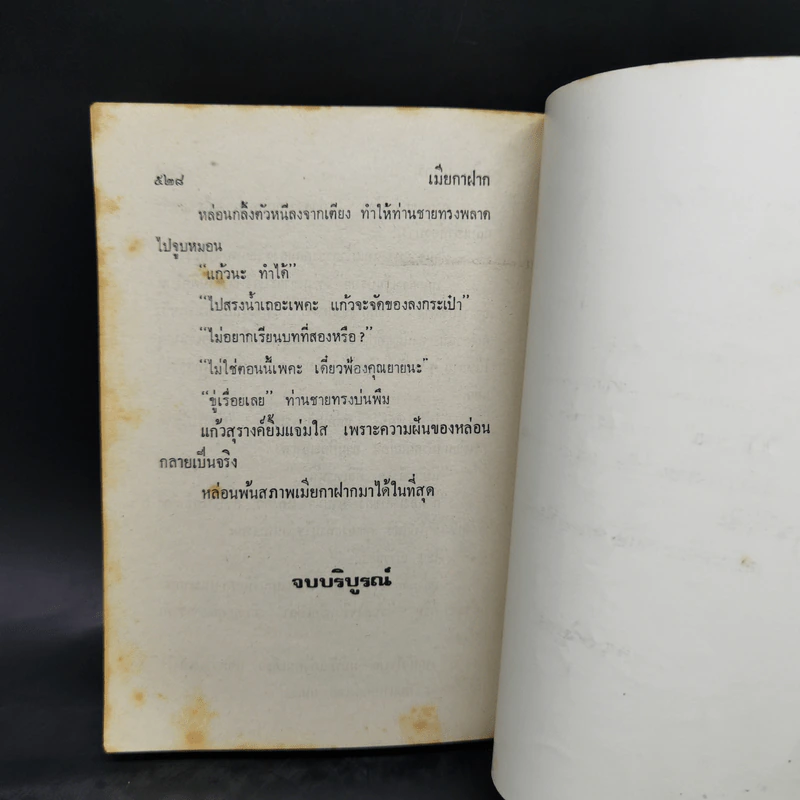 ๕๒๘ เมียกาฝาก
หล่อนกลิ้งตัวหนีลงจากเตียง ทำให้ท่านชายทรงพลาด
ไปจูบหมอน
“แก้วนะ ทำได้”
“ไปสรงน้ำเถอะเพคะ แก้วจะจัดของลงกระเป๋า”
“ไม่อยากเรียนบทที่สองหรือ?”
“ไม่ใช่ตอนนี้เพคะ เดี๋ยวฟ้องคุณยายนะ”
“ขู่เรื่อยเลย” ท่านชายทรงบ่นพึม
แก้วสุรางค์ยิ้มแจ่มใส เพราะความฝันของหล่อน
กลายเป็นจริง
หล่อนพ้นสภาพเมียกาฝากมาได้ในที่สุด
จบบริบูรณ์